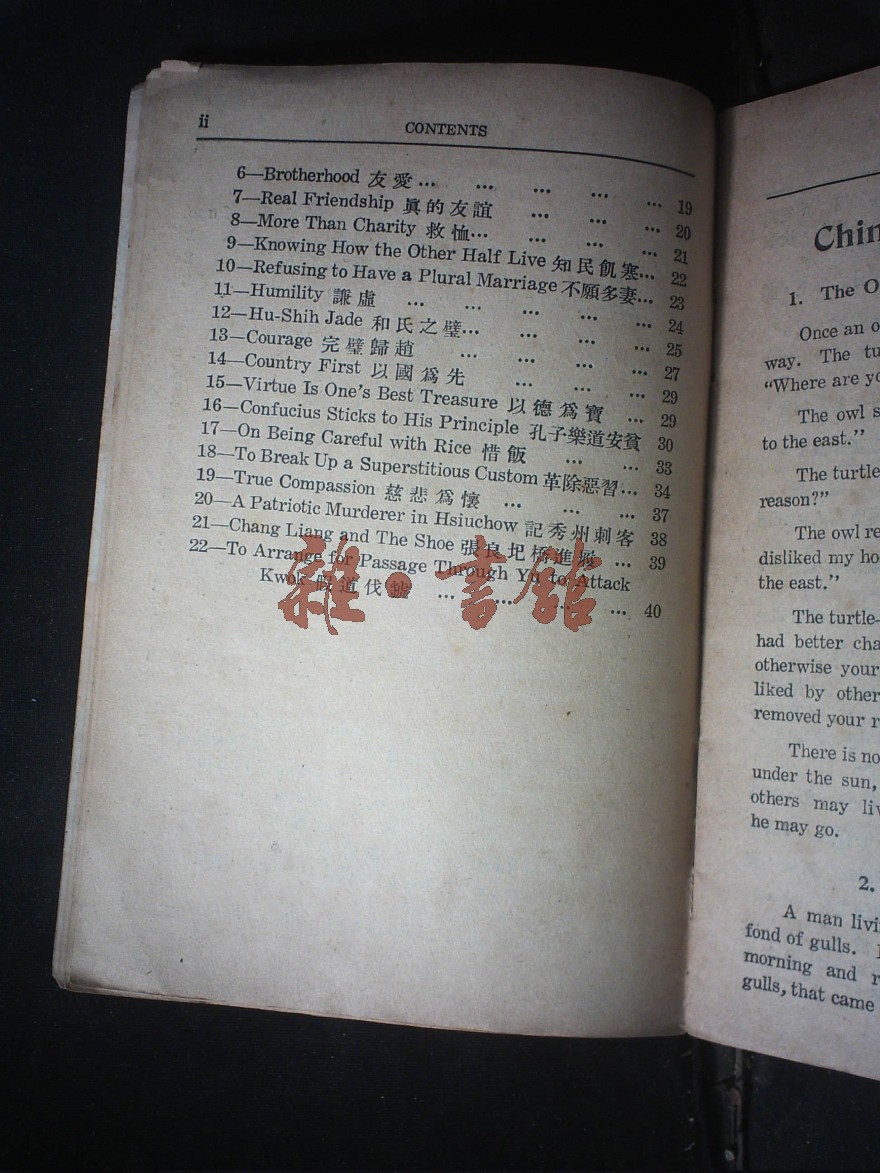 ii
CONTENTS
6—Brotherhood 友愛 ... ... ... ... ... 19
7—Real Friendship 眞的友誼 ... ... ... 20
8—More Than Charity 救恤... ... ... ... 21
9—Knowing How the Other Half Live 知民飢寒... 22
10—Refusing to Have a Plural Marriage 不願多妻... 23
11—Humility 謙虛 ... ... ... ... ... 24
12—Hu-Shih Jade 和氏之璧... ... ... ... 25
13—Courage 完璧歸趙 ... ... ... ... 27
14—Country First 以國爲先 ... ... ... 29
15—Virtue Is One's Best Treasure 以德爲寶 ... 29
16—Confucius Sticks to His Principle 孔子樂道安貧 30
17—On Being Careful with Rice 惜飯 ... ... 33
18—To Break Up a Superstitious Custom 革除惡習... 34
19—True Compassion 慈悲爲懷 ... ... ... 37
20—A Patriotic Murderer in Hsiuchow 記秀州刺客 38
21—Chang Liang and The Shoe 張良圯橋進履 ... 39
22—To Arrange for Passage Through Yu to Attack
Kwok 假道伐虢 ... ... ... ... 40
雜·書館
Chin
1. The O
Once an o
way. The tu
"Where are yo
The owl s
to the east."
The turtle
reason?"
The owl re
disliked my ho
the east."
The turtle-
had better cha
otherwise your
liked by other
removed your r
There is no
under the sun,
others may liv
he may go.
2.
A man livi
fond of gulls.
morning and r
gulls, that came